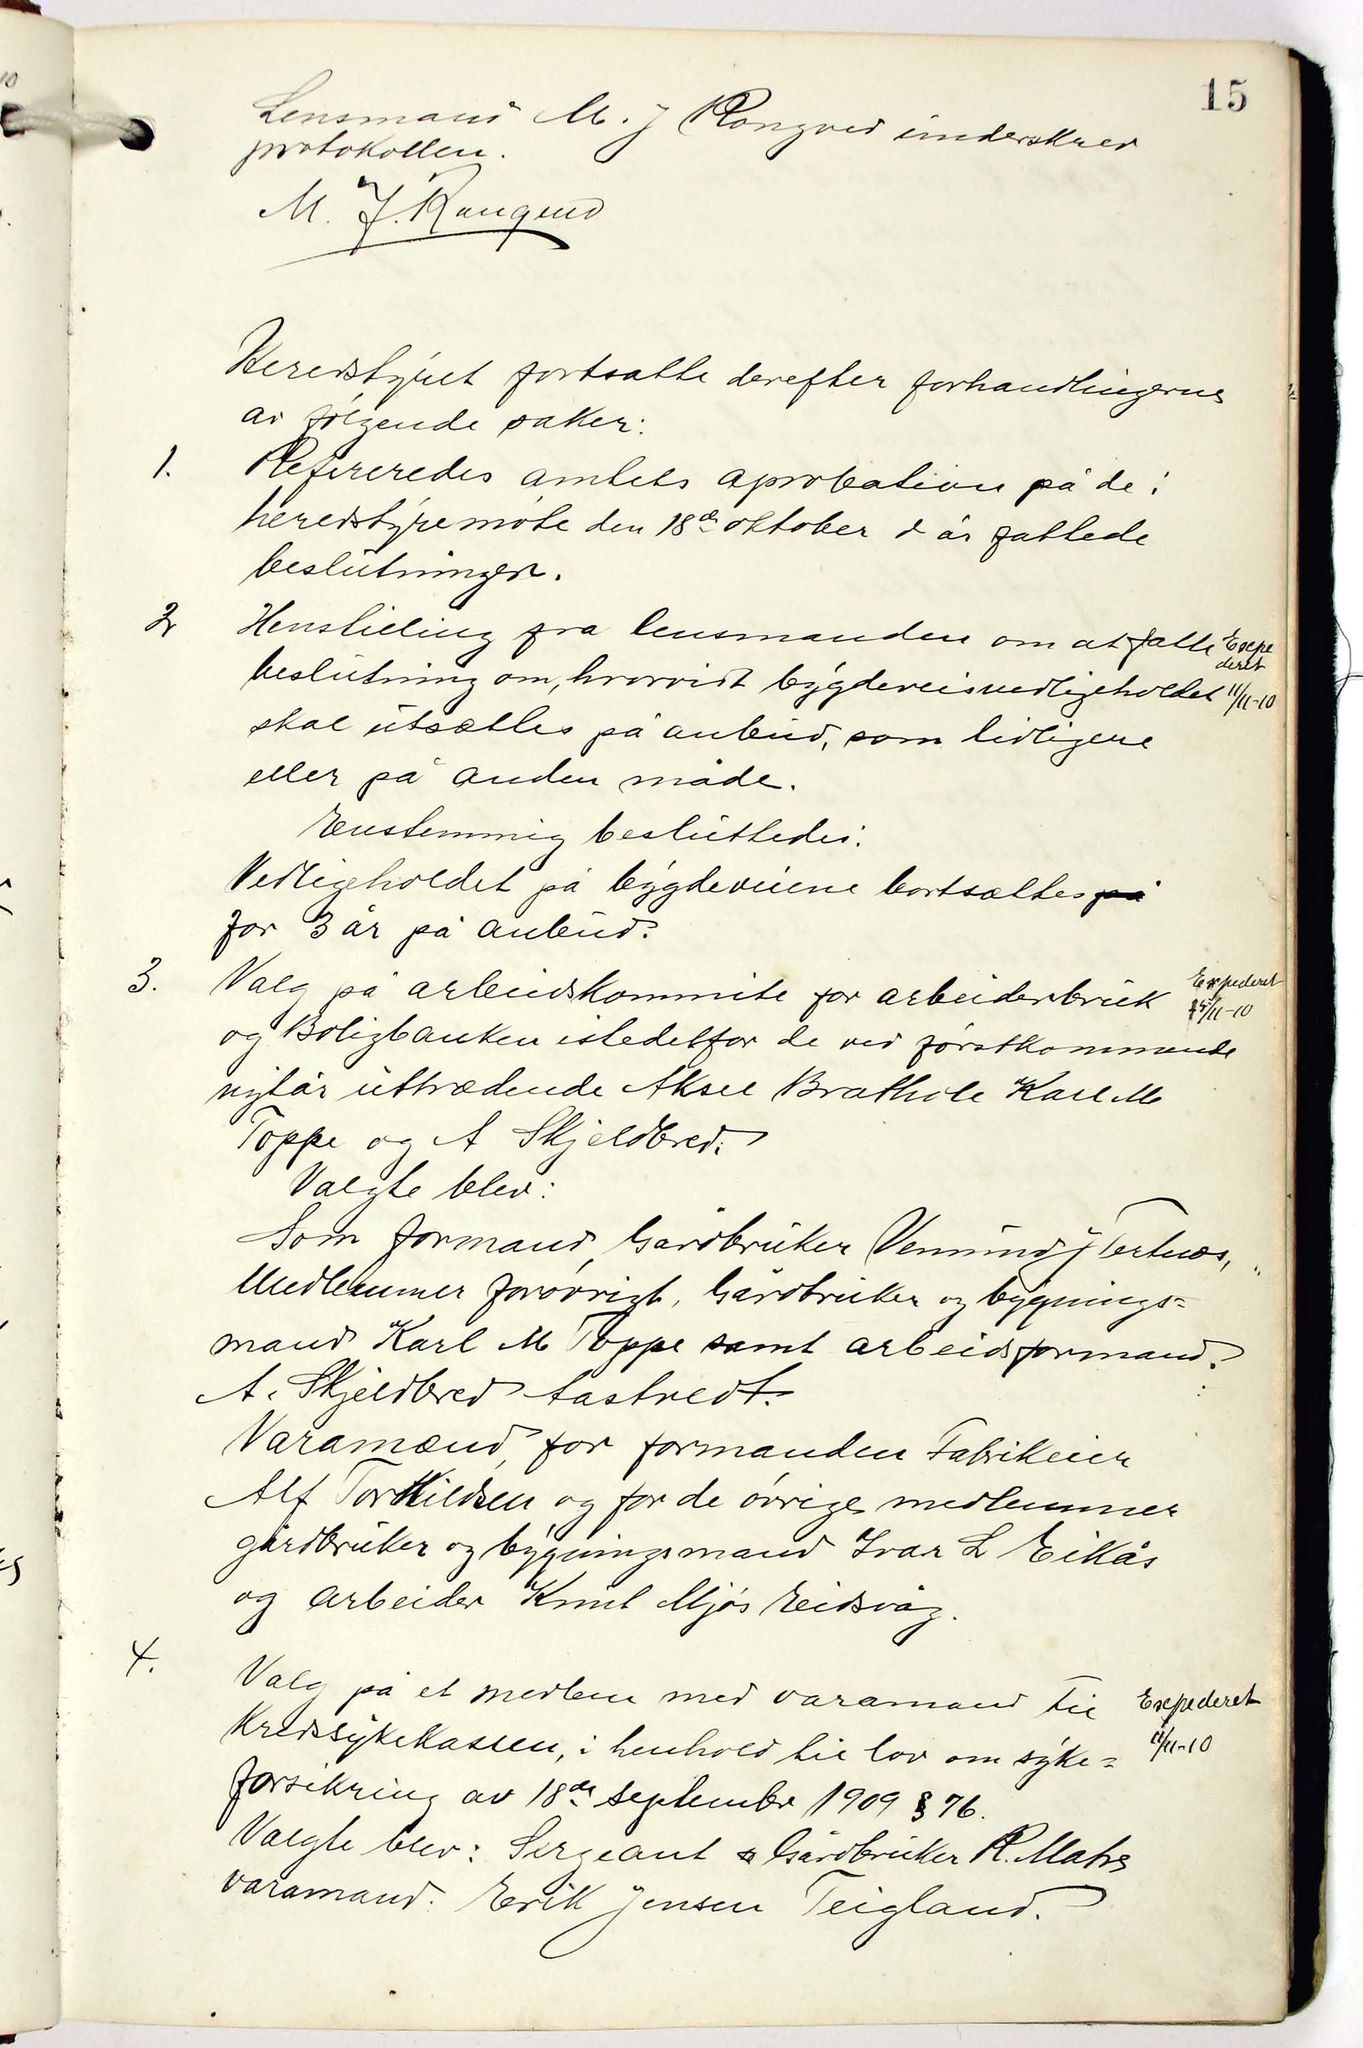 15
Lensmand M. J Rongved underskrev
protokollen.
M. J. Rongved
Heredstyret fortsatte derefter forhandlingerne
av følgende saker:
1. Refereredes amtets aprobation på de i
heredstyremøte den 18de oktober d år fattede
beslutninger.
2 Henstilling fra lensmanden om at fatte Expe
deret
beslutning om, hvorvidt bygdeveisvedligeholdet 11/11-10
skal utsættes på anbud, som tidligere
eller på anden måde.
Enstemmig besluttedes:
Vedligeholdet på bygdeveiene bortsættes på
for 3 år på anbud.
3. Valg på arbeidskommite for arbeiderbruk Expederet
og Boligbanken istedetfor de ved førstkommende 15/11-10
nytår uttrædende Aksel Brathole Karl M
Toppe og A Skjeldbred.
Valgte blev:
Som formand, Gårdbruker Vemund J Tertnes,
Medlemmer forøvrigt, Gårdbruker og bygnings=
mand Karl M Toppe samt arbeidsformand.
A. Skjeldbred Aastvedt.
Varamænd, for formanden Fabrikeier
Alf Torkildsen og for de øvrige medlemmer
gårdbruker og bygningsmand Ivar L Eikås
og arbeider Knut Mjøs Eidsvåg.
4. Valg på et medlem med varamand til Expederet
Kredssykekassen, i henhold til lov om syke= 11/11-10
forsikring av 18de september 1909 § 76.
Valgte blev: Sergeant & Gårdbruker R. Matre
varamand: Erik Jensen Teigland.